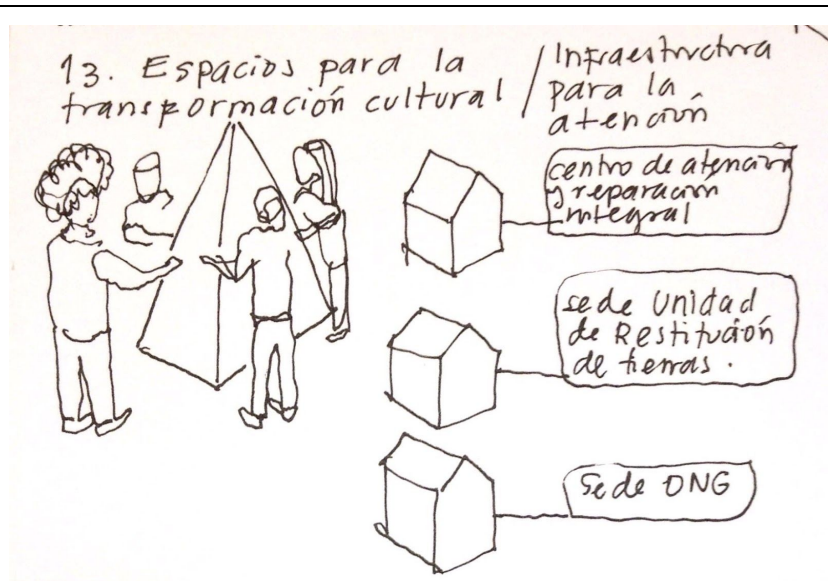 13. Espacios para la
transformación cultural /
Infraestructura
para la
atención
centro de atención
y reparación
integral
sede Unidad
de Restitución
de tierras.
Sede ONG